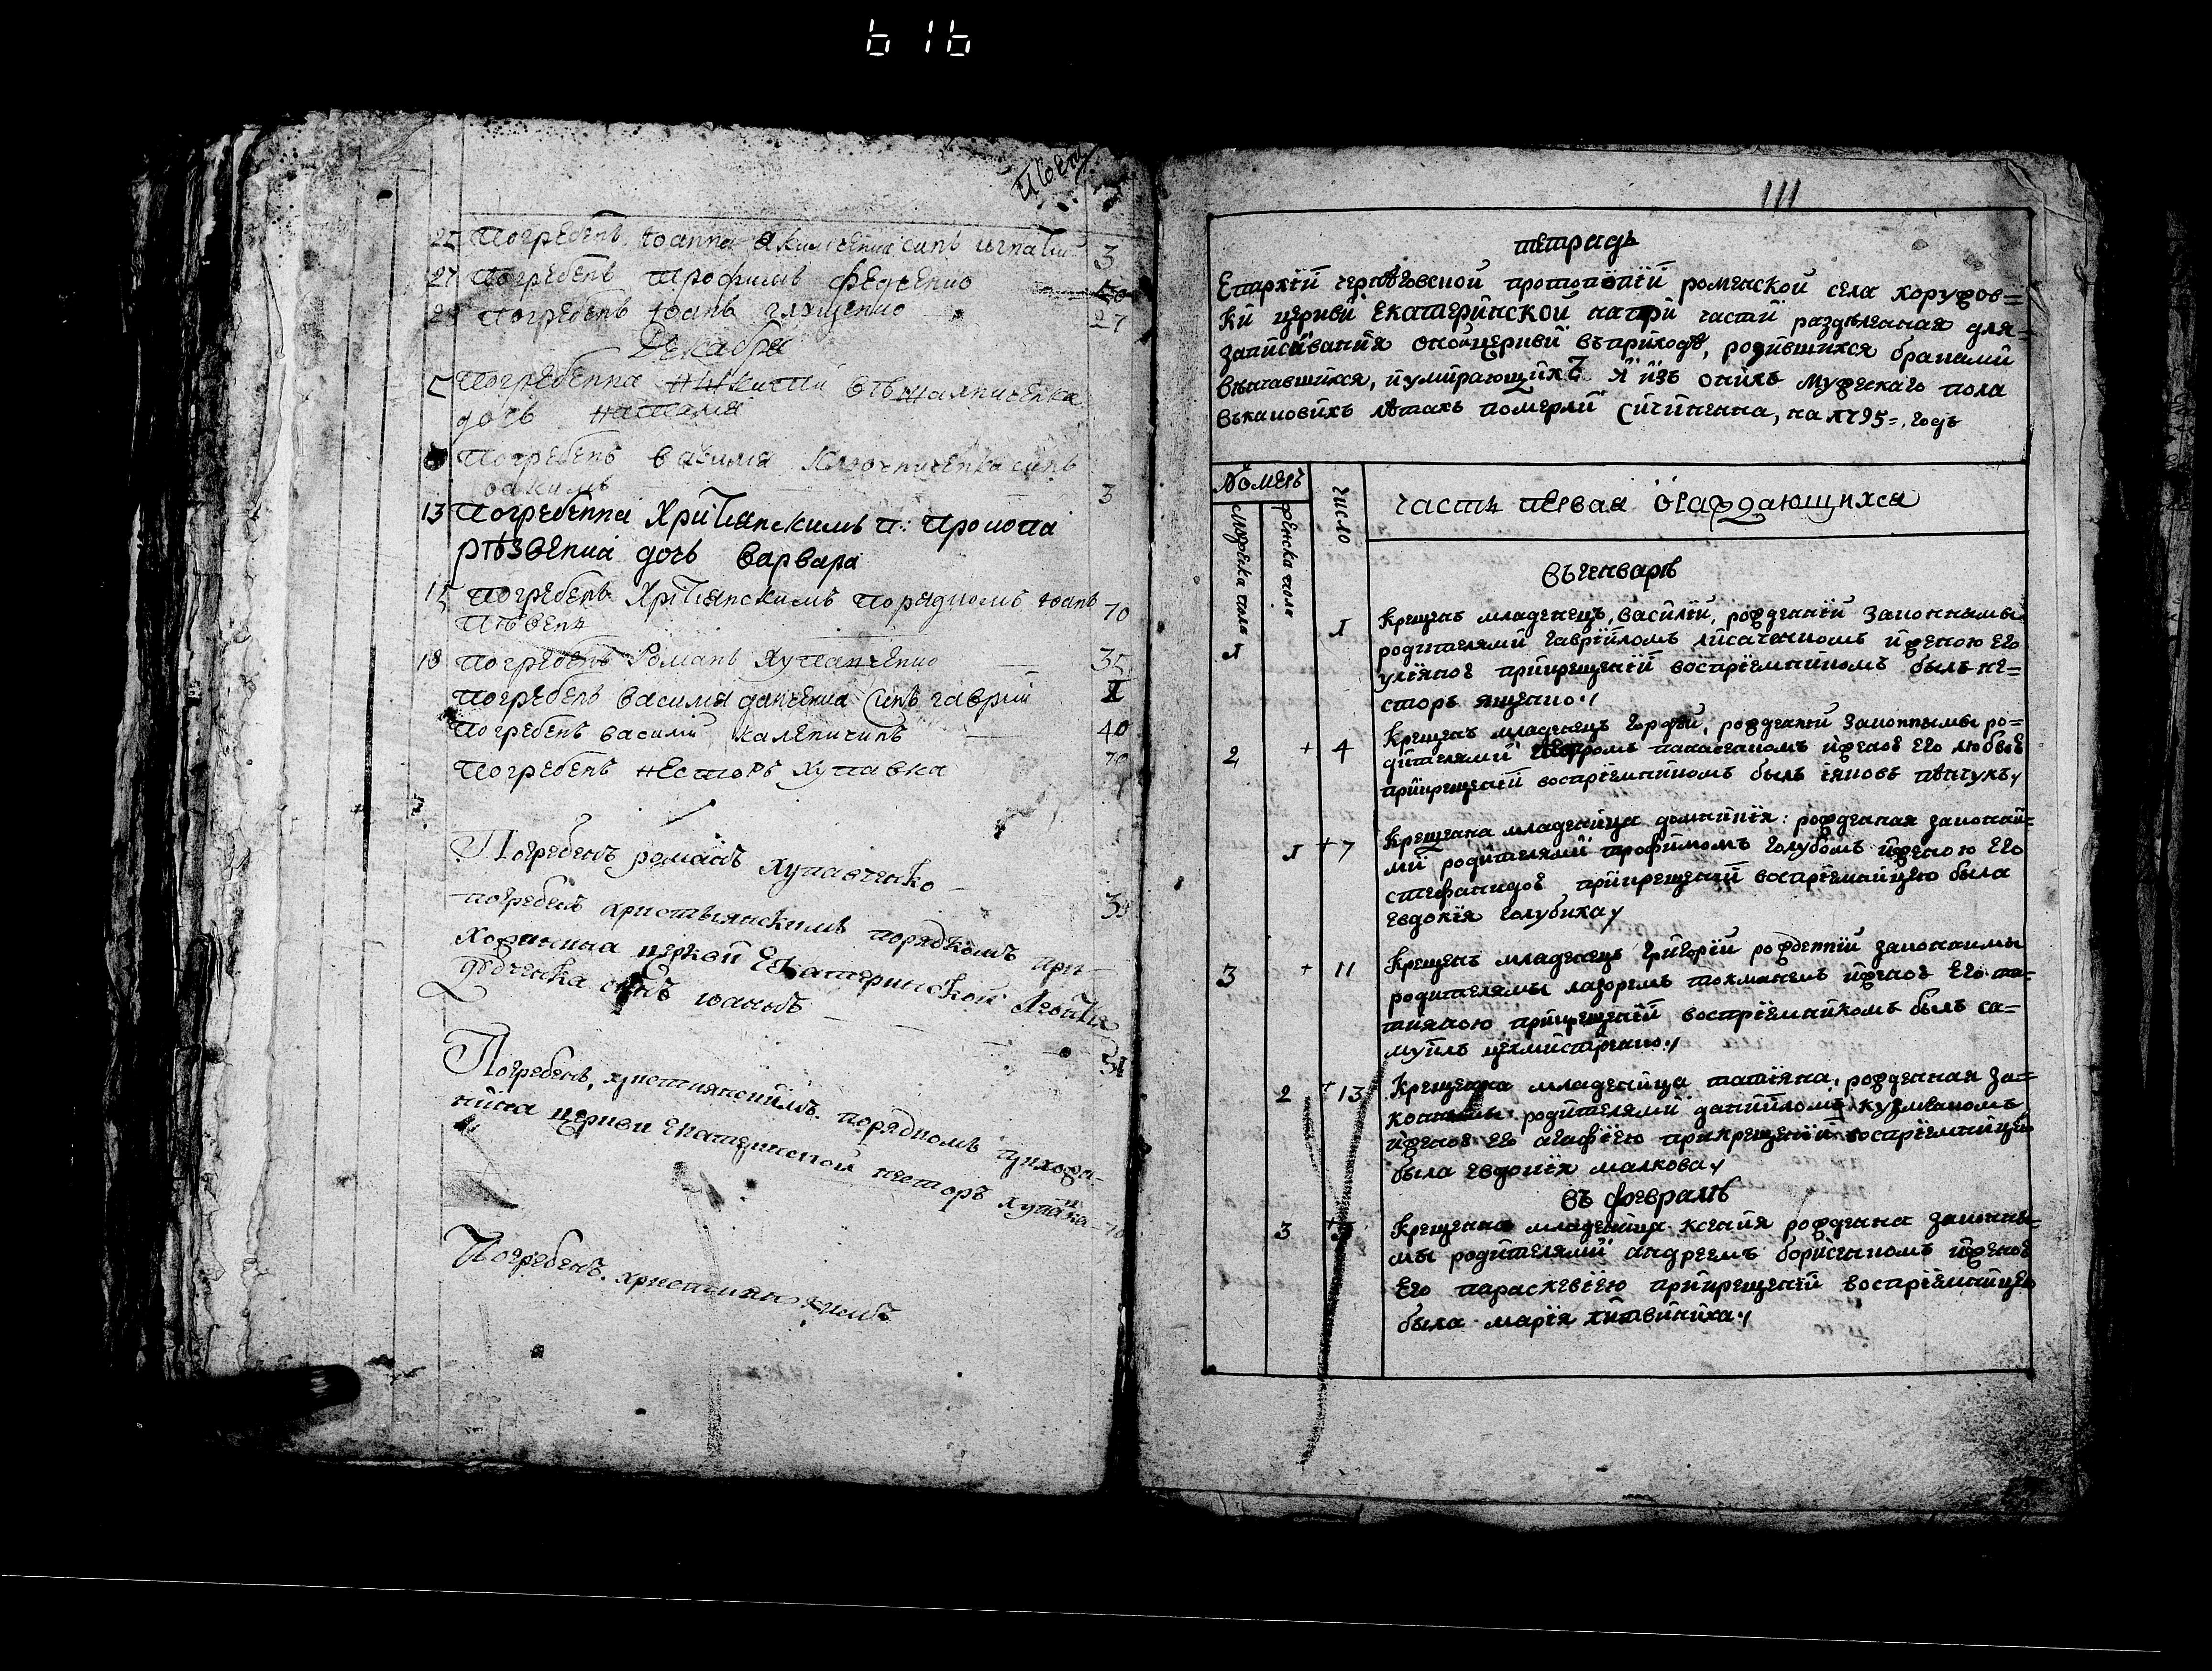 616
25 Погребенъ Іоанна сынъ игнатий 3
27 Погребенъ Трофимъ Федченко
Погребенъ Іоанъ глущенко 27
Декабри
5 Погребенна
дочь наталия
Погребенъ василия сынъ
иоакимъ 3
13 Погребенна Християнскимъ п: Прокопа
рѣзвенка дочь варвара
15 погребенъ Християнскимъ порядкомъ иоанъ 70
18 погребенъ Романъ Хупавченко 35
погребенъ василия данченка синъ гаврiил 1
Погребенъ василий каленичинъ 40
Погребенъ несторъ хупавка 70
Погребенъ романъ хупавченко 35
погребен христьянскимъ порядкомъ при-
хожанина церкви Екатеринской
Федченка синъ иоаннъ 31
Погребенъ, християнскимъ порядкомъ прихожа-
нина церкви Екатеринской несторъ хупавка 70
Погребенъ християнскимъ
111
тетрадь
Епархий черніговской протопопіи роменской села коружов=
ки церкви Екатеринской натри части разделеная для=
записивания онойцеркви въприходѣ, родившихся браками
вѣнчавшихся, иумирающихъ и изъ онихъ мужескаго пола
въкаковихъ лѣтахъ померли сичиненна, на 1795=, годъ
Номеръ
мужеска полъ
женска полъ
число
часть первая ораждающихся
въ генварѣ
1 1 Крещенъ младенецъ, василій, рожденній законнымы
родителями гаврійломъ лисаченкомъ иженою его
уляною прикрещеніи воспріемникомъ былъ не=
сторъ ященко
2 + 4 Крещенъ младенецъ гордѣй, рожденній законнымы ро=
дителями иженою его любовю
прикрещеніи воспріемникомъ былъ
1 + 7 Крещенна младеница домникія: рожденная законни=
ми родителями трофимомъ голубомъ иженою его
стефанидою прикрещеніи воспріемницею была
евдокія голубиха
3 + 11 Крещенъ младенецъ григорій рожденній законнимы
родителямы лазоремъ токманемъ иженою его та=
тияною прикрещеніи воспріемникомъ былъ са=
муилъ
2 + 13 Крещенна младеница татіяна, рожденная за=
конными родителями даніиломъ кузменкомъ
иженою его агафіею прикрещеніи воспріемницею
была евдокія малкова
въ февралѣ
3 Крещенна младеница ксенія рожденна законны=
мы родителями андреемъ борисенкомъ иженою
его параскевіею прикрещеніи воспріемницею
была марія литвиниха